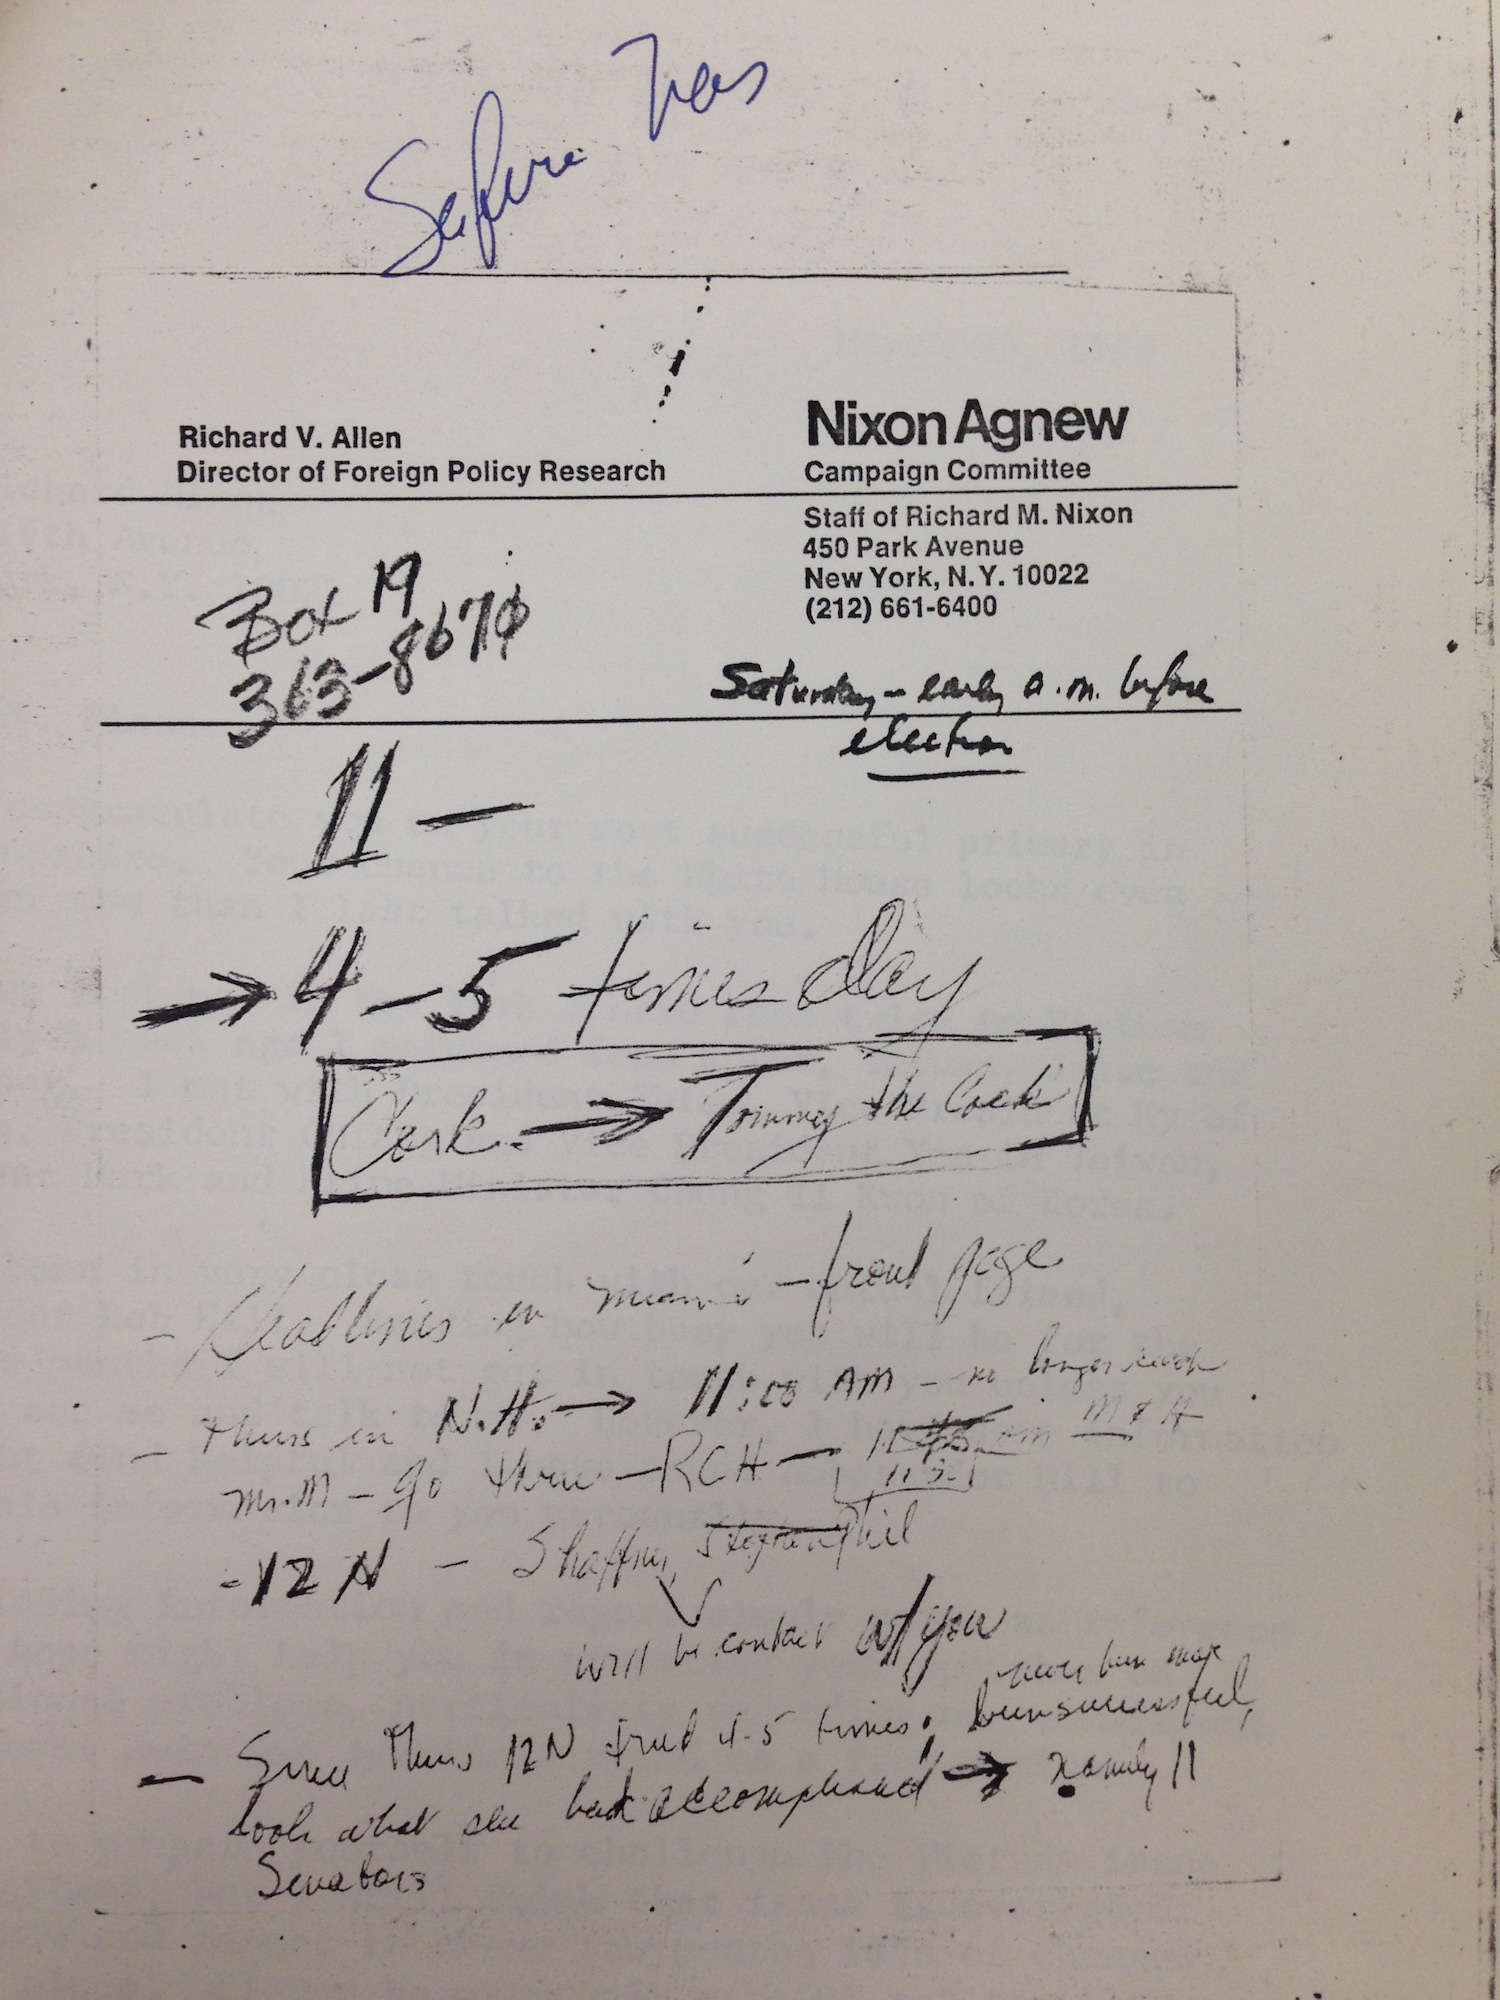 Safire
Richard V. Allen
Director of Foreign Policy Research
Nixon Agnew
Campaign Committee
Staff of Richard M. Nixon
450 Park Avenue
New York, N.Y. 10022
(212) 661-6400
Box 19
363-8670
Saturday - early a.m. before
election
11 -
→ 4-5 times day
Cork. → Tommy the Cork
- Headlines in Miami - front page
- Thurs in N.H. → 11:00 AM - no longer reach
Mr. M - go thru - RCH - in M & A
115
- 12 N - Shaffner, Phil
will be contact w/ you
never been more
- Since Thurs 12N tried 4-5 times; unsuccessful,
look what she had accomplished → namely 11
Senators